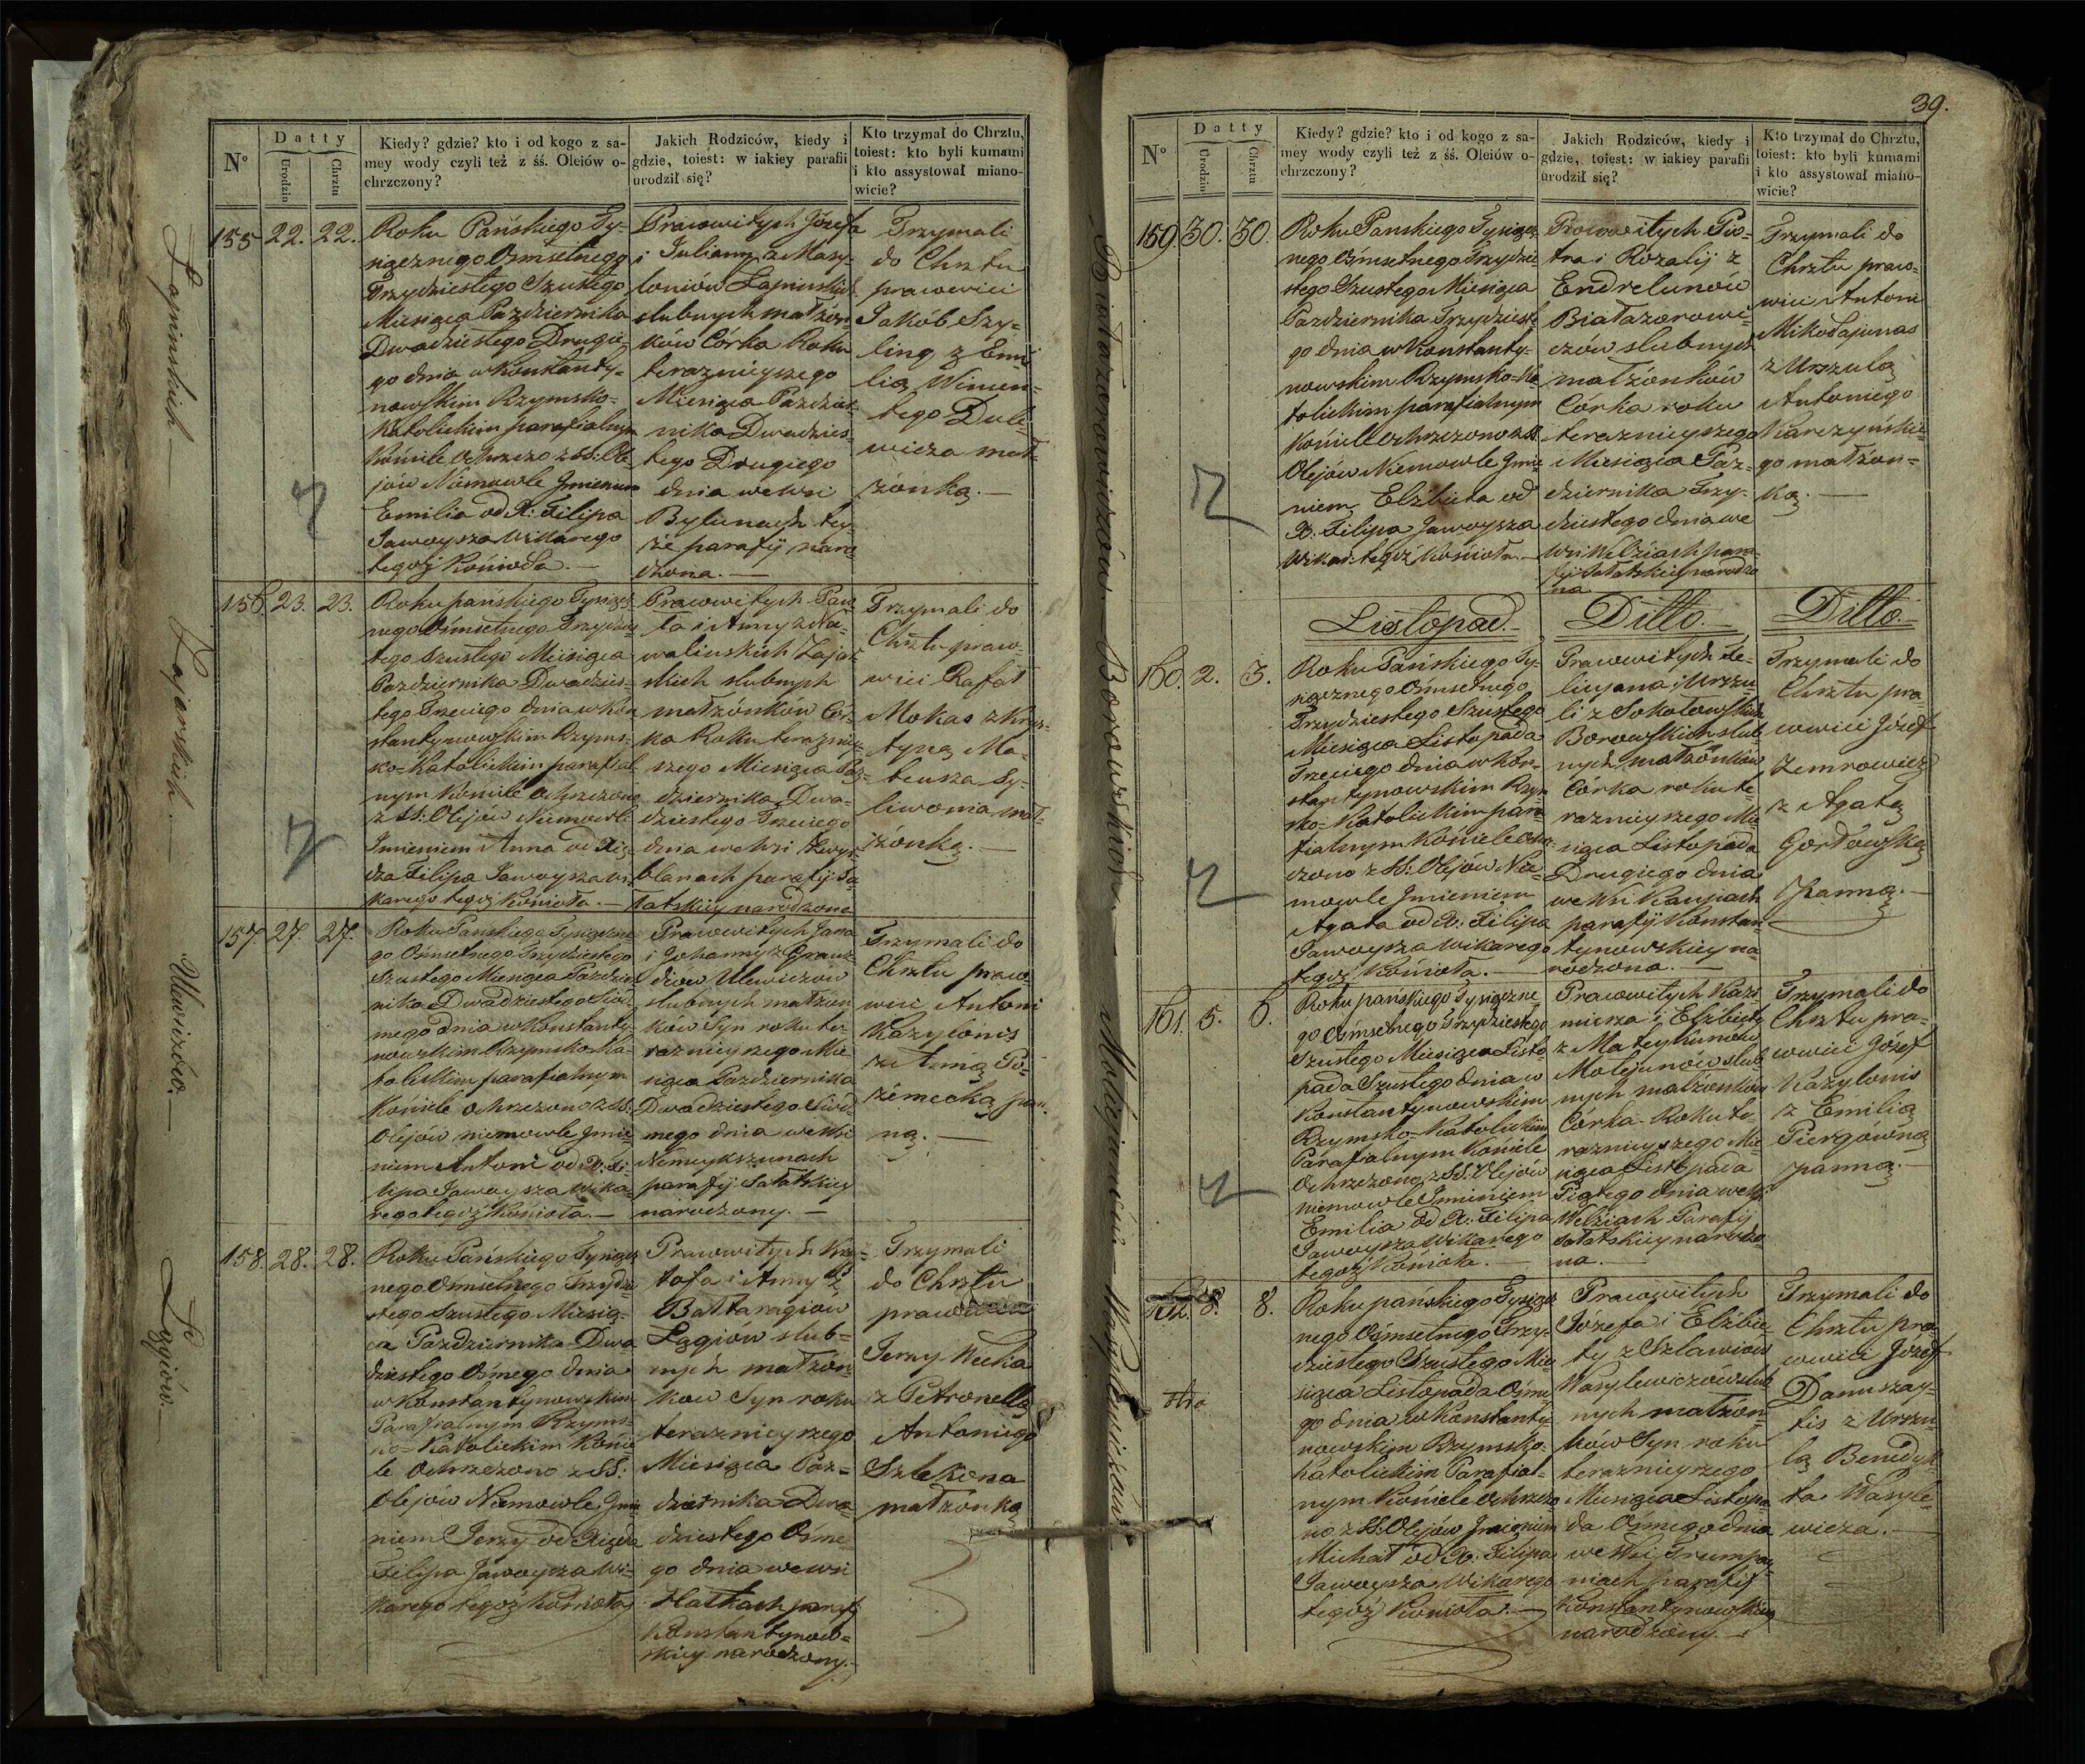 N°
Datty
Urodzin
Chrztu
Kiedy? gdzie? kto i od kogo z sa-
mey wody czyli też z śś. Oleiów o-
chrzczony?
Jakich Rodziców, kiedy i
gdzie, toiest: w iakiey parafii
urodził się?
Kto trzymał do Chrztu,
toiest: kto byli kumami
i kto assystował miano-
wicie?
Łapinskich
155 22. 22.
Roku Pańskiego Ty-
siącznego Ośmsetnego
Trzydziestego Szustego
Miesiąca Pazdziernika
Dwadziestego Drugie-
go dnia w Konstanty-
nowskim Rzymsko-
Katolickim parafialnym
Kościele Ochrzczo z SS: Ole-
jow Niemowle Jmieniem
Emilia od X: Filipa
Jawoysza Wikarego
tegoż Kościoła. —
Pracowitych Józefa
i Julianny z Masy-
loniów Łapinskich
slubnych małżon-
ków Córka Roku
teraznieyszego
Miesiąca Paździer-
nika Dwadzies-
tego Drugiego
dnia we Wsi
Bytunach tey-
że parafij naro-
dzona. —
Trzymali
do Chrztu
pracowici
Jakób Szy-
ling z Emi-
lią Wincen-
tego Dule-
wicza mał-
żonką. —
Zajarskich
156. 23. 23.
Roku pańskiego Tysiącz-
nego Ośmsetnego Trzydzies-
tego Szustego Miesiąca
Pazdziernika Dwadzies-
tego Trzeciego dnia w Kon-
stantynowskim Rzyms-
ko-Katolickim parafial-
nym Kościele Ochrzczono
z SS: Olejów Niemowle
Imieniem Anna od Xię-
dza Filipa Jawoysza Wi-
karego tegoż Kościoła. —
Pracowitych Paw-
ła i Anny z Na-
waliuskich Zajar-
skich slubnych
małżonkow Cor-
ka Roku teraznie-
szego Miesiąca Paź-
dziernika Dwa-
dziestego Trzeciego
dnia we Wsi
blanach parafij Sa-
łatskiey narodzona
Trzymali do
Chrztu praco-
wici Rafał
Mokas z Krys-
tyną Ma-
teusza Sy-
liwonia mał-
żonką. —
Ulewiczów.
157. 27. 27.
Roku Pańskiego Tysiączne-
go Ośmsetnego Trzydziestego
Szustego Miesiąca Pazdzier-
nika Dwadziestego Siód-
mego dnia w Konstanty-
nowskim Rzymsko Ka-
tolickim parafialnym
Kościele ochrzczono z SS:
Olejów niemowle Jmie-
niem Antoni od X: Fi-
lipa Jawoysza Wika-
rego tegoż Kościoła. —
Pracowitych Jana
i Johanny z
Ulewiczów
slubnych małżon-
ków Syn roku te-
raznieyszego Mie-
siąca Pazdziernika
Dwadziestego Siód-
mego dnia we Wsi
Nemeykszunach
parafij Sałatskiey
narodzony. —
Trzymali do
Chrztu praco-
wici Antoni
Kazylonis
ze Anną Po-
żemecką pan-
ną. —
Łygiów. —
158. 28. 28.
Roku Pańskiego Tysiącz-
nego Ośmsetnego Trzydzie-
stego Szustego Miesią-
ca Pazdziernika Dwa-
dziestego Ośmego dnia
w Konstantynowskim
Parafialnym Rzyms-
ko-Katolickim Koście-
le Ochrzczono z SS:
Olejów Niemowle Jmie-
niem Jerzy od Xiędza
Filipa Jawoysza Wi-
karego tegoż Kościoła
Pracowitych Krzy-
tofa i Anny z
Baltaragiow
Łągiów slub-
nych małżon-
kow Syn roku
teraznieyszego
Miesiąca Paz-
dziernika Dwa-
dziestego Ośme-
go dnia we wsi
Hałkach paraf
Konstantynow-
skiey narodzony. —
Trzymali
do Chrztu
Jerzy Wecka
z Petronellą
Antoniego
Szlekona
małżonką
39.
N°
Datty
Urodzin
Chrztu
Kiedy? gdzie? kto i od kogo z sa-
mey wody czyli też z śś. Oleiów o-
chrzczony?
Jakich Rodziców, kiedy i
gdzie, toiest: w iakiey parafii
urodził się?
Kto trzymał do Chrztu,
toiest: kto byli kumami
i kto assystował miano-
wicie?
Białazorowiczów.
159. 30. 30.
Roku Panskiego Tysiącz-
nego Ośmsetnego Trzydzie-
stego Szustego Miesiąca
Pazdziernika Trzydzieste-
go dnia w Konstanty-
nowskim Rzymsko-Ka-
tolickim parafialnym
Kościele Ochrzczono z SS.
Olejów Niemowle Jmie-
niem Elżbieta od
X. Filipa Jawoysza
Wikar: tegoż Kościoła. —
Pracowitych Pio-
tra i Rozalij z
Endrelunów
Białazorowi-
czów slubnych
małżonków
Córka roku
teraznieyszego
Miesiąca Paz-
dziernika Trzy-
dziestego dnia we
Wsi Welżiach para-
fij Sałatskiey narodzo-
na
Trzymali do
Chrztu praco-
wici Antoni
Mikołajunas
z Urszulą
Antoniego
Karczyńskie-
go małżon-
ką. —
Listopad. — Ditto. — Ditto. —
Borowskich. —
160. 2. 3.
Roku Pańskiego Ty-
siącznego Ośmsetnego
Trzydziestego Szustego
Miesiąca Listopada
Trzeciego dnia w Kon-
stantynowskim Rzym-
sko-Katolickim para-
fialnym Kościele Ochrz-
czono z SS: Olejów Nie-
mowle Jmieniem
Agata od X: Filipa
Jawoysza Wikarego
tegoż Kościoła. —
Pracowitych Fe-
licyana i Urszu-
li z Sokołowskich
Borowskich slub-
nych małżonków
Córka roku te-
raznieyszego Mie-
siąca Listopada
Drugiego dnia
we Wsi Kaupiach
parafij Konstan-
tynowskiey na-
rodzona. —
Trzymali do
Chrztu pra-
cowici Józef
Zemrowicz
z Agatą
Gorłowską
Panną. —
161. 5. 6.
Roku pańskiego Tysiączne-
go Ośmsetnego Trzydziestego
Szustego Miesiąca Listo-
pada Szustego dnia w
Konstantynowskim
Rzymsko-Katolickim
Parafialnym Kościele
Ochrzczono z SS. Olejów
niemowle Jmieniem
Emilia od X: Filipa
Jawoysza Wikarego
tegoż Kościoła. —
Pracowitych Kazi-
mierza i Elżbiety
z Mateykunów
Molejunów slub-
nych małżonków
Córka Roku te-
raznieyszego Mie-
siąca Listopada
Piątego dnia we wsi
Welżiach Parafij
Sałatskiey narodzo-
na. —
Trzymali do
Chrztu pra-
cowici Józef
Kazylonis
z Emilią
Piergówną
panną. —
8. 8.
Roku pańskiego Tysiącz-
nego Ośmsetnego Trzy-
dziestego Szustego Mie-
siąca Listopada Ośme-
go dnia w Konstanty-
nowskim Rzymsko-
Katolickim Parafial-
nym Kościele Ochrzczo-
no z SS: Olejów Jmieniem
Michał od X: Filipa
Jawoysza Wikarego
tegoż Kościoła. —
Pracowitych
Józefa i Elżbie-
ty z Szlawiow
Wasylewiczów slub-
nych małżon-
ków Syn roku
teraznieyszego
Miesiąca Listopa-
da Ośmego dnia
we Wsi Trumpa-
niach parafij
Konstantynowskiey
narodzony. —
Trzymali do
Chrztu pra-
cowici Józef
Danuszay-
tis z Urszu-
lą Benedyk-
ta Wasyle-
wicza. —